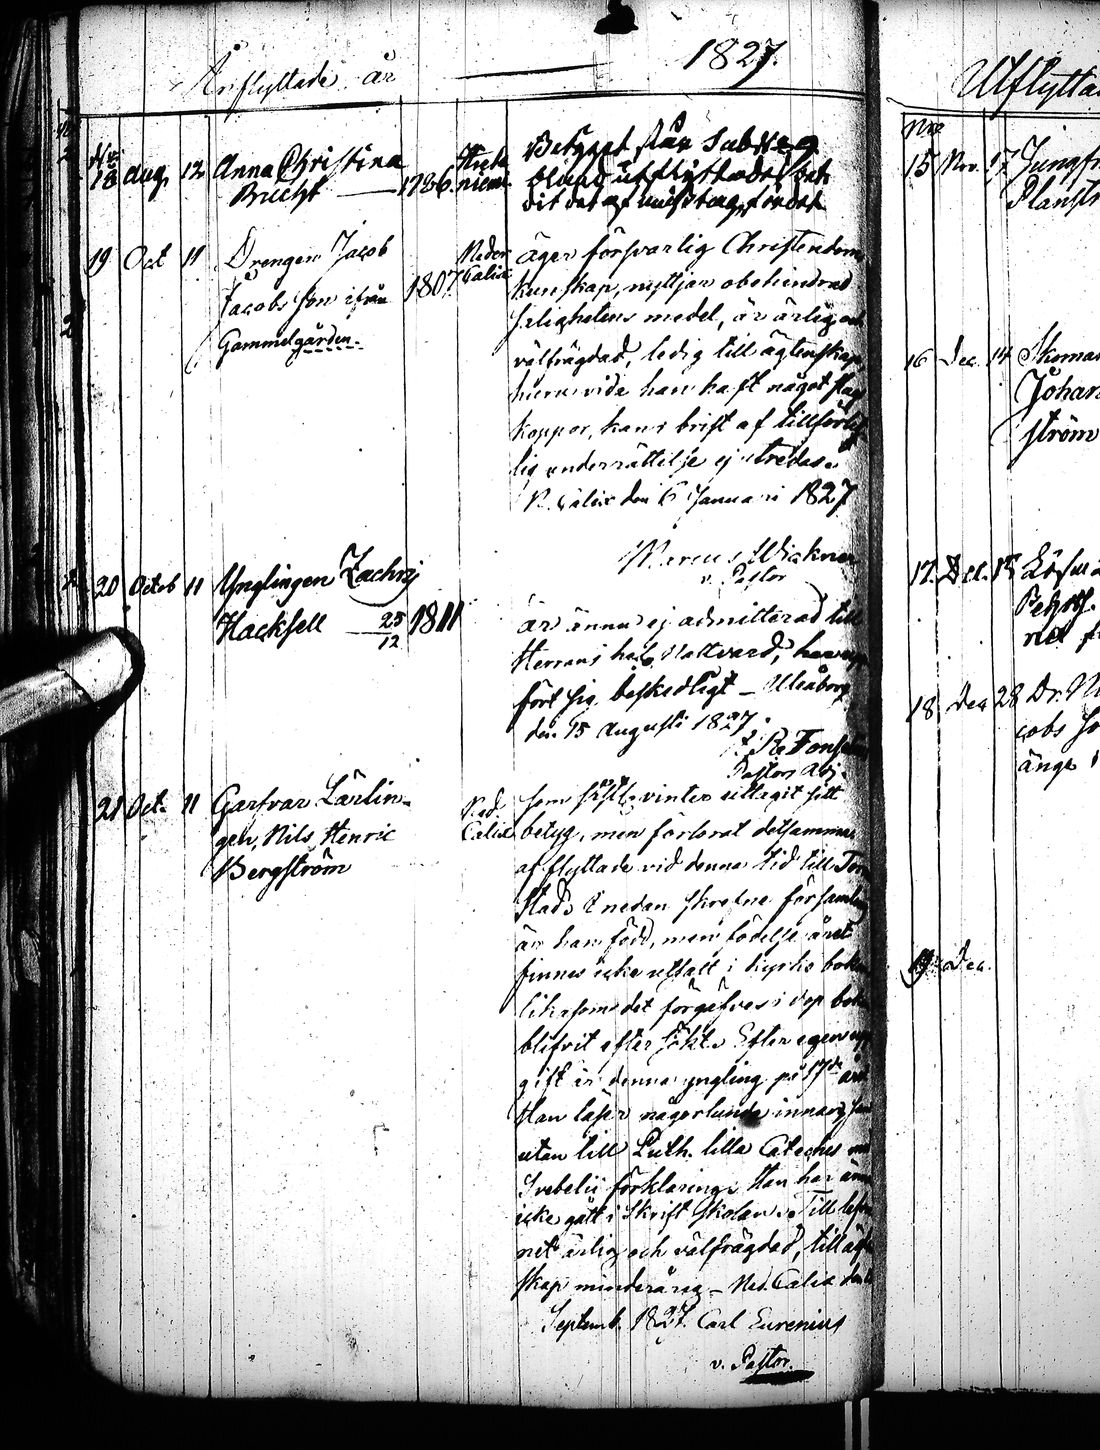 Inflyttade år 1827.
No 18 Aug. 12 Anna Christina
Brücht — 1786.
Betyget står sub No 9
bland utflyttade,
19 Oct 11 Drengen Jacob
Jacobs Son ifrån
Gammelgården.
1807. Neder Calix
äger försvarlig Christendoms
kunskap, nyttjar obehindrad
salighetens medel, är ärlig och
välfrägdad, ledig till ägtenskap
huruvida han haft något slag
koppor, kan i brist af tillförlit
lig underrättelse ej utredas.
N. Calix den 6 Januari 1827
Wickner
v. Pastor
20 Octob 11 Ynglingen Zachrij
Hacksell 25/12 1811
är ännu ej admitterad till
Herrans hel. Nattvard, har upp
fört sig beskedligt — Uleåborg
den 15 Augusti 1827.
Pastors Adj.
21 Oct. 11 Garfvar Lärlin-
gen, Nils Henric
Bergström
Ned. Calix
som sistl. vinter uttagit sitt
betyg, men förlorat detsamma
afflyttade vid denna tid till
Stad. I nedan skrefne församling
är han född, men födelse året
finnes icke utsatt i kyrko boken
likasom det förgäfves i dop boken
blifvit efter sökt. Efter egen upp
gift är denna yngling på 17de året
Han läser någorlunda innan, som
utan till Luth. lilla Cateches med
Svebelii förklaring. Han har ännu
icke gått i Skrift Skolan. Till lefver
net ärlig och välfrägdad, till ägten
skap minderårig — Ned. Calix den
Septemb. 1827. Carl Eurenius
v. Pastor.
Utflytta
Nro
15 Nov. 17 Jungfr
16 Dec. 14 Skomak
Johan
ström
17. Dec. 18
18 Dec 28 Dr. N
cobs So
änge
19 Dec.